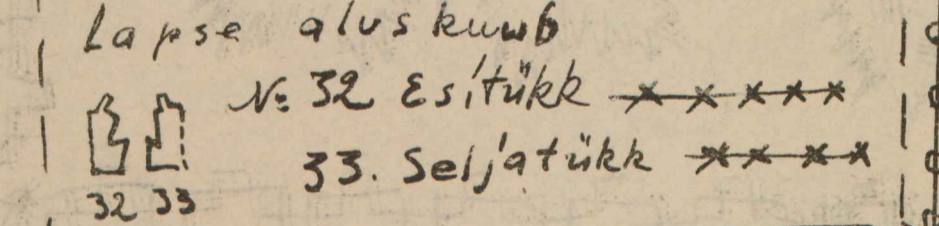 Lapse aluskuub
№ 32 Esitükk
33. Seljatükk
32 33